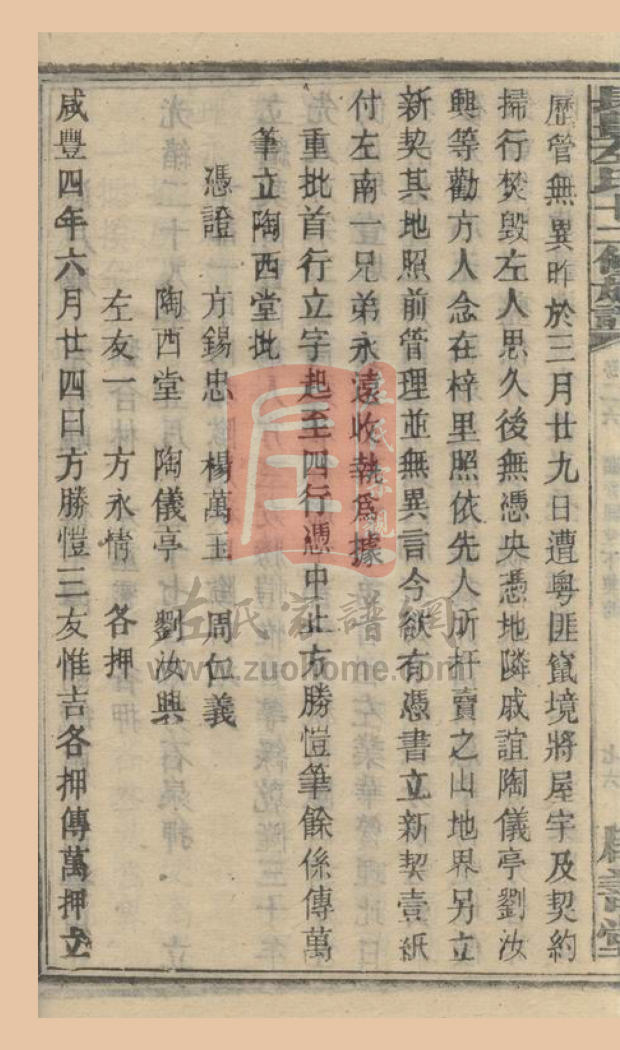 歷管無異昨於三月廿九日遭粵匪竄境將屋宇及契約
掃行焚毀左人思久後無憑央憑地隣戚誼陶儀亭劉汝
興等勸方人念在梓里照依先人所扦賣之山地界另立
新契其地照前管理並無異言今欲有憑書立新契壹紙
付左南一兄弟永遠收執爲據
重批首行立字起至四行憑中止方勝愷筆餘係傳萬
筆立陶西堂批
憑證 方錫忠 楊萬玉 周仁義
陶西堂 陶儀亭 劉汝興
左友一 方永情 各押
咸豐四年六月廿四日方勝愷三友惟吉各押傳萬押立
左氏家譜網
www.zuohome.com